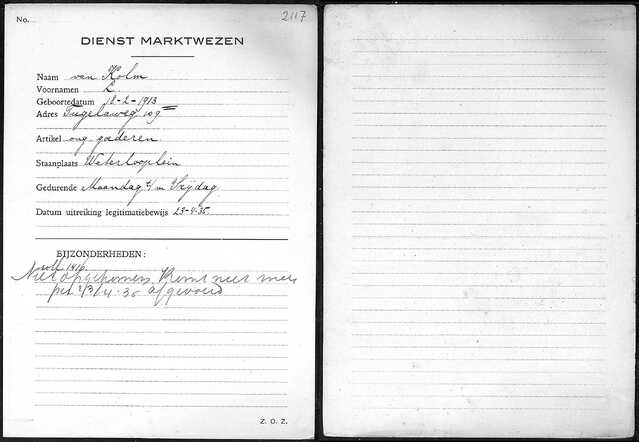 No. 2117
DIENST MARKTWEZEN
Naam van Kolm
Voornamen L.
Geboortedatum 18-2-1913
Adres Tugelaweg 109 III
Artikel ong. goederen
Staanplaats Waterlooplein
Gedurende Maandag t/m Vrijdag
Datum uitreiking legitimatiebewijs 23-4-35
BIJZONDERHEDEN:
volt 1416.
Niet opgekomen. Komt niet meer
4-35 afgevoerd
Z. O. Z.